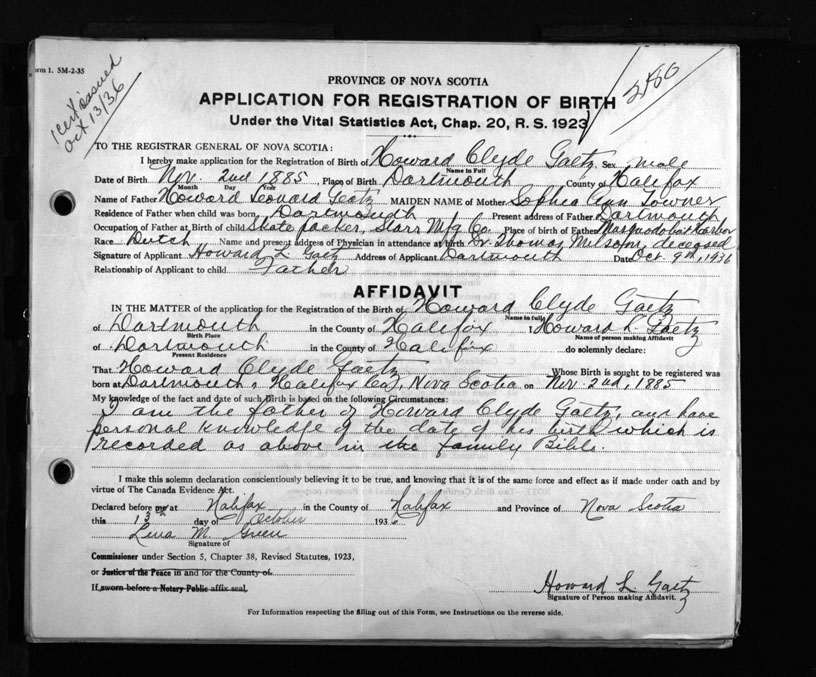 orm 1. 5M-2-35
1 cert issued
Oct 13/36
2500
PROVINCE OF NOVA SCOTIA
APPLICATION FOR REGISTRATION OF BIRTH
Under the Vital Statistics Act, Chap. 20, R. S. 1923
TO THE REGISTRAR GENERAL OF NOVA SCOTIA:
I hereby make application for the Registration of Birth of Howard Clyde Gaetz Sex male
Name in Full
Date of Birth Nov. 2nd 1885, Place of Birth Dartmouth County of Halifax
Month Day Year
Name of Father Howard Leonard Geatz MAIDEN NAME of Mother Sophia Ann Towner
Residence of Father when child was born Dartmouth Present address of Father Dartmouth
Occupation of Father at Birth of child Skate packer, Starr Mfg Co. Place of birth of Father Musquodoboit Harbor
Race Dutch Name and present address of Physician in attendance at birth Dr. Thomas Milsom, deceased
Signature of Applicant Howard L Gaetz Address of Applicant Dartmouth Date Oct. 9th, 1936
Relationship of Applicant to child Father
AFFIDAVIT
IN THE MATTER of the application for the Registration of the Birth of Howard Clyde Gaetz
Name in full
of Dartmouth in the County of Halifax I Howard L. Gaetz
Birth Place Name of person making Affidavit
of Dartmouth in the County of Halifax do solemnly declare:
Present Residence
That Howard Clyde Gaetz Whose Birth is sought to be registered was
born at Dartmouth, Halifax Co., Nova Scotia on Nov. 2nd, 1885
My knowledge of the fact and date of such Birth is based on the following Circumstances:
I am the father of Howard Clyde Gaetz, and have
personal knowledge of the date of his birth which is
recorded as above in the family Bible.
I make this solemn declaration conscientiously believing it to be true, and knowing that it is of the same force and effect as if made under oath and by
virtue of The Canada Evidence Act.
Declared before me at Halifax in the County of Halifax and Province of Nova Scotia
this 13th day of October 1936
Lena M. Green
Signature of
Commissioner under Section 5, Chapter 38, Revised Statutes, 1923,
or Justice of the Peace in and for the County of
If sworn before a Notary Public affix seal.
Howard L. Gaetz
Signature of Person making Affidavit.
For Information respecting the filling out of this Form, see Instructions on the reverse side.